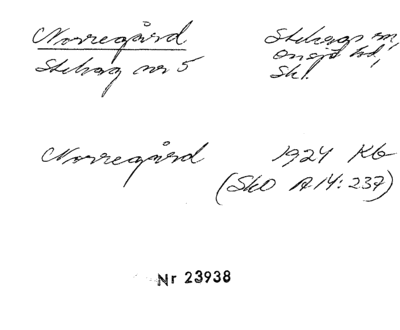 Norregård Stehags sn,
Stehag nr 5 Onsjö hd,
Sk.
Norregård 1924 Kb
(SkO A 14: 237)
Nr 23938